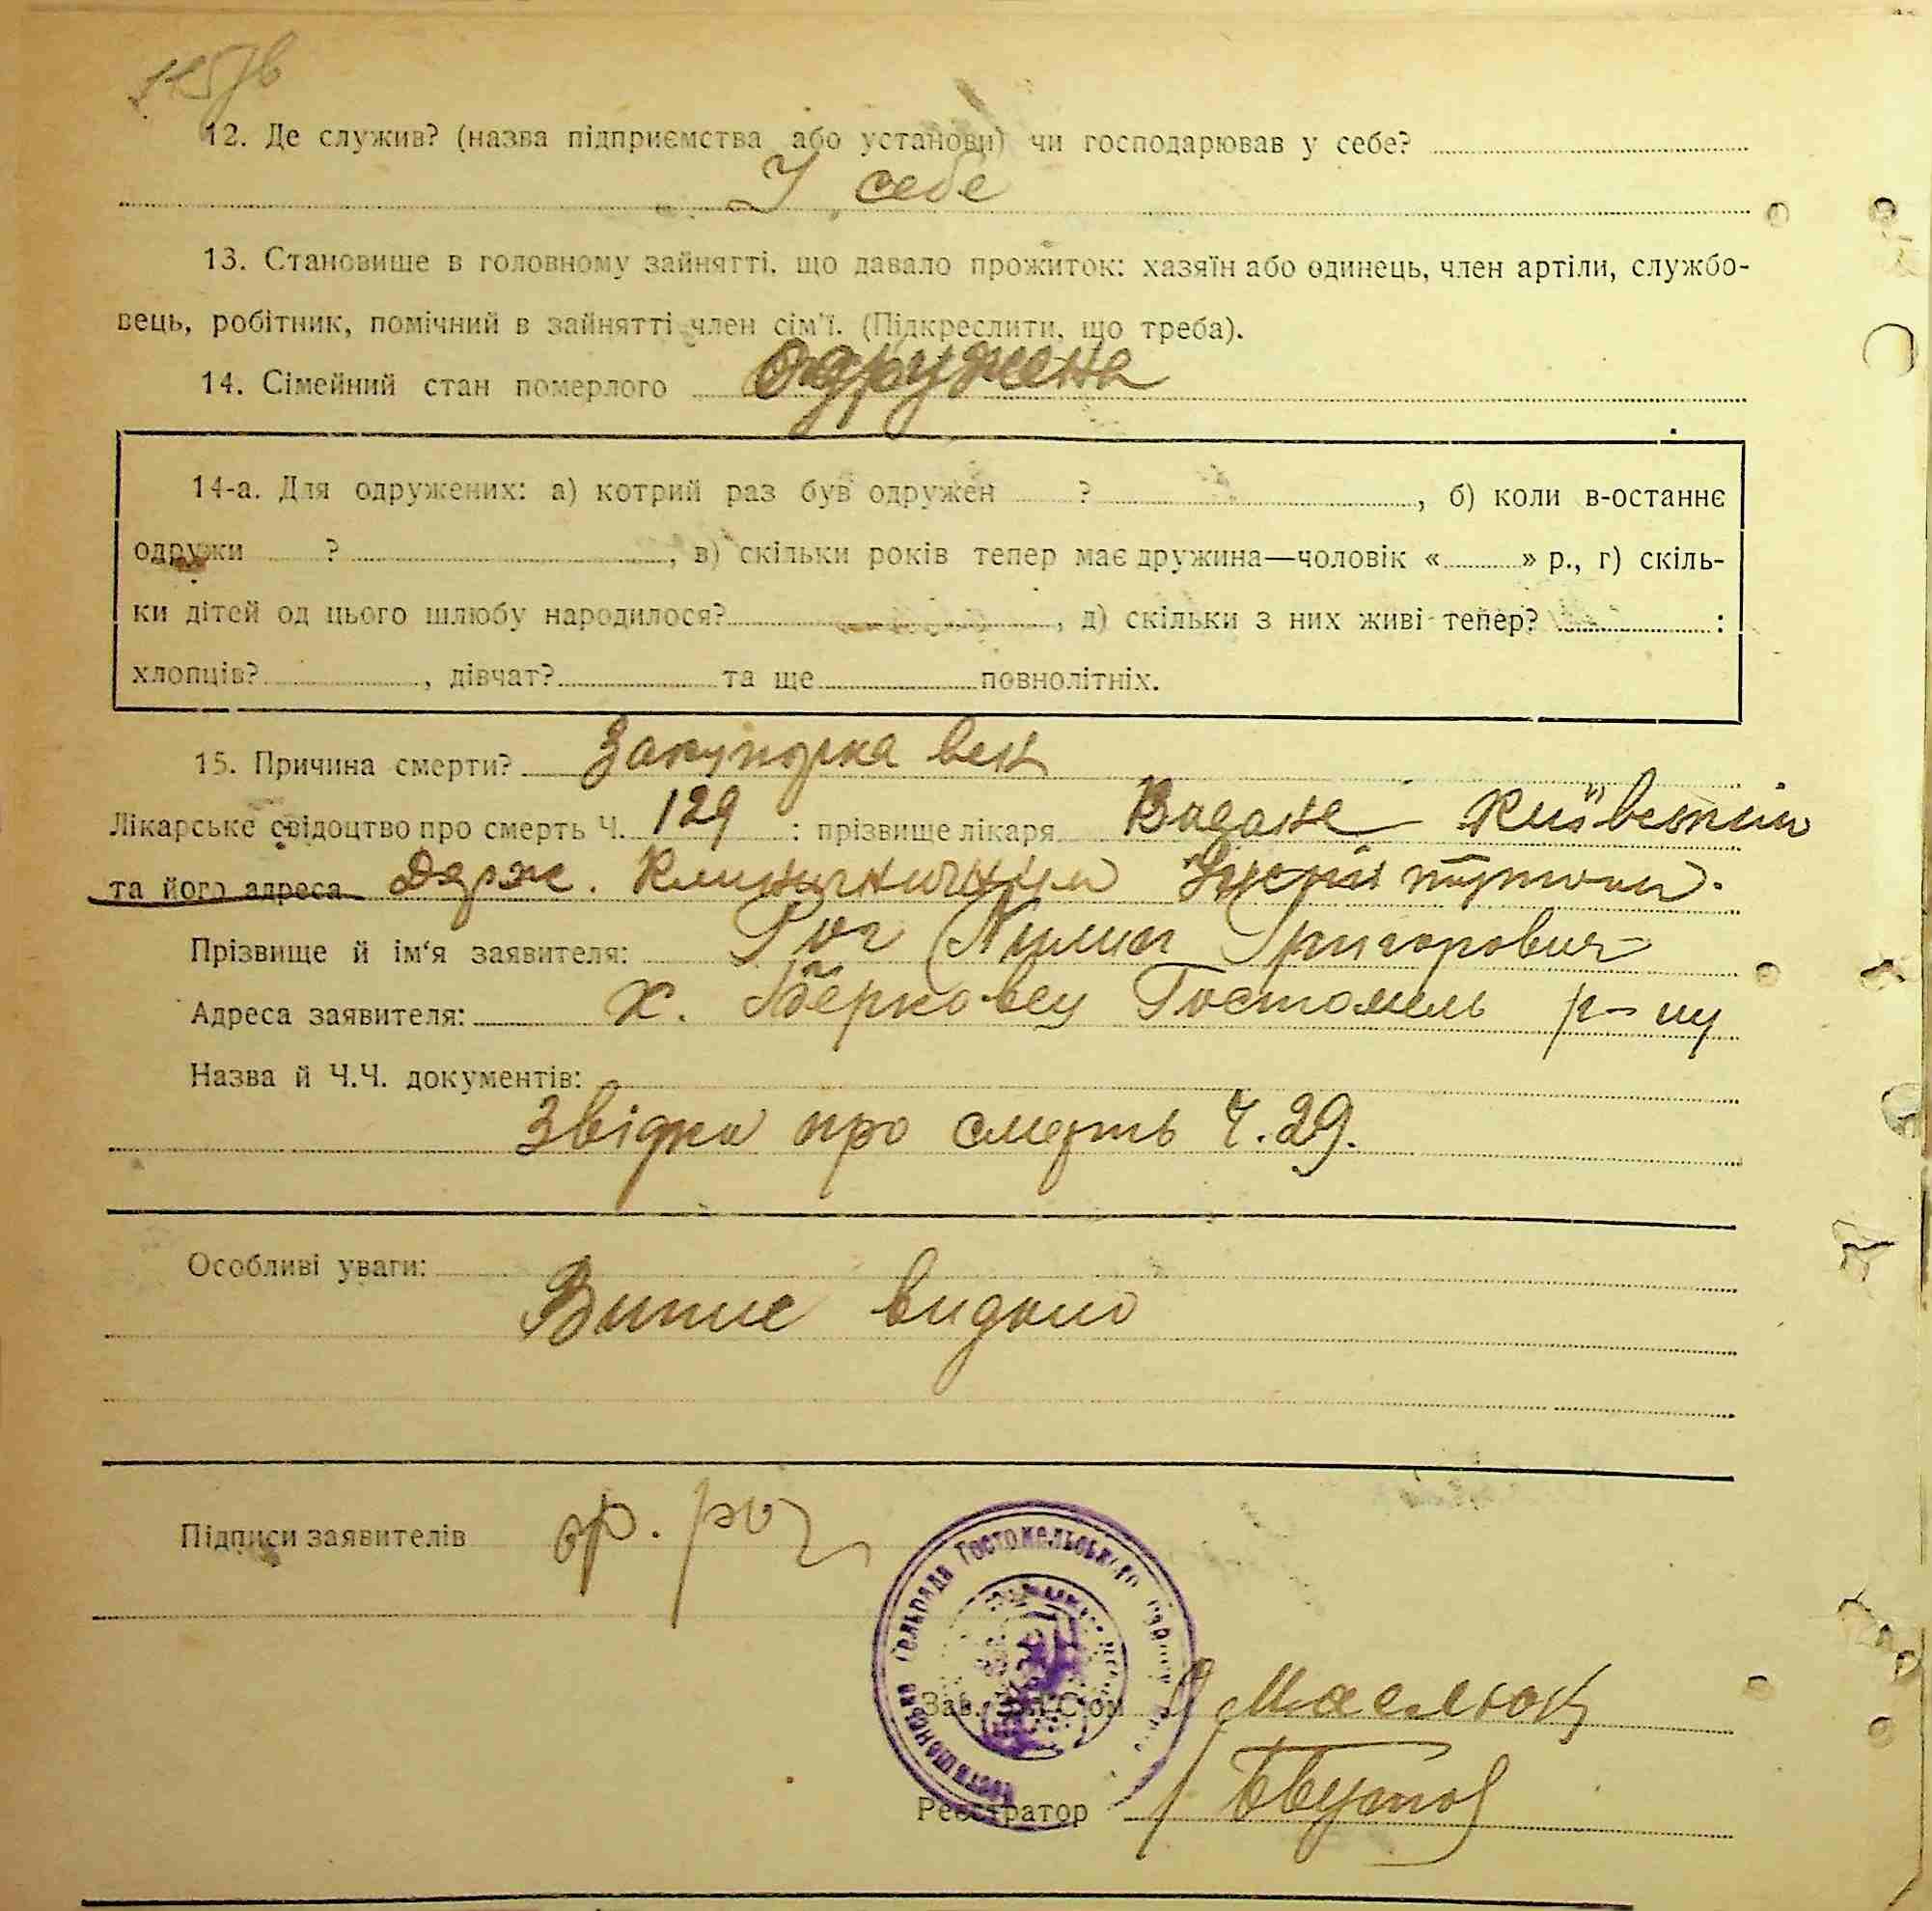 12. Де служив? (назва підприємства або установи) чи господарював у себе?
У себе
13. Становище в головному зайнятті, що давало прожиток: хазяїн або одинець, член артіли, службо-
вець, робітник, помічний в зайнятті член сім'ї. (Підкреслити, що треба).
14. Сімейний стан померлого одружена
14-а. Для одружених: а) котрий раз був одружен ?, б) коли в-останнє
одружи ?, в) скільки років тепер має дружина—чоловік « » р., г) скіль-
ки дітей од цього шлюбу народилося?, д) скільки з них живі тепер? :
хлопців?, дівчат? та ще повнолітніх.
15. Причина смерти? Закупорка вен
Лікарське свідоцтво про смерть Ч. 129 : прізвище лікаря
та його адреса Держ.
Прізвище й ім'я заявителя: Рог Григорович
Адреса заявителя: х. Берковец Гостомель р-ну
Назва й Ч.Ч. документів:
Звідка про смерть Ч. 29.
Особливі уваги:
Випис видано
Підписи заявителів
сельрада Гостомельського
Зав. ЗАГС'ом Маслюк
Реєстратор